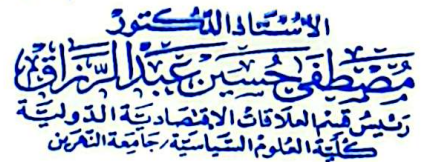 الأستاذ الدكتور
مصطفى حسين عبد الرزاق
رئيس قسم العلاقات الاقتصادية الدولية
كلية العلوم السياسية / جامعة النهرين